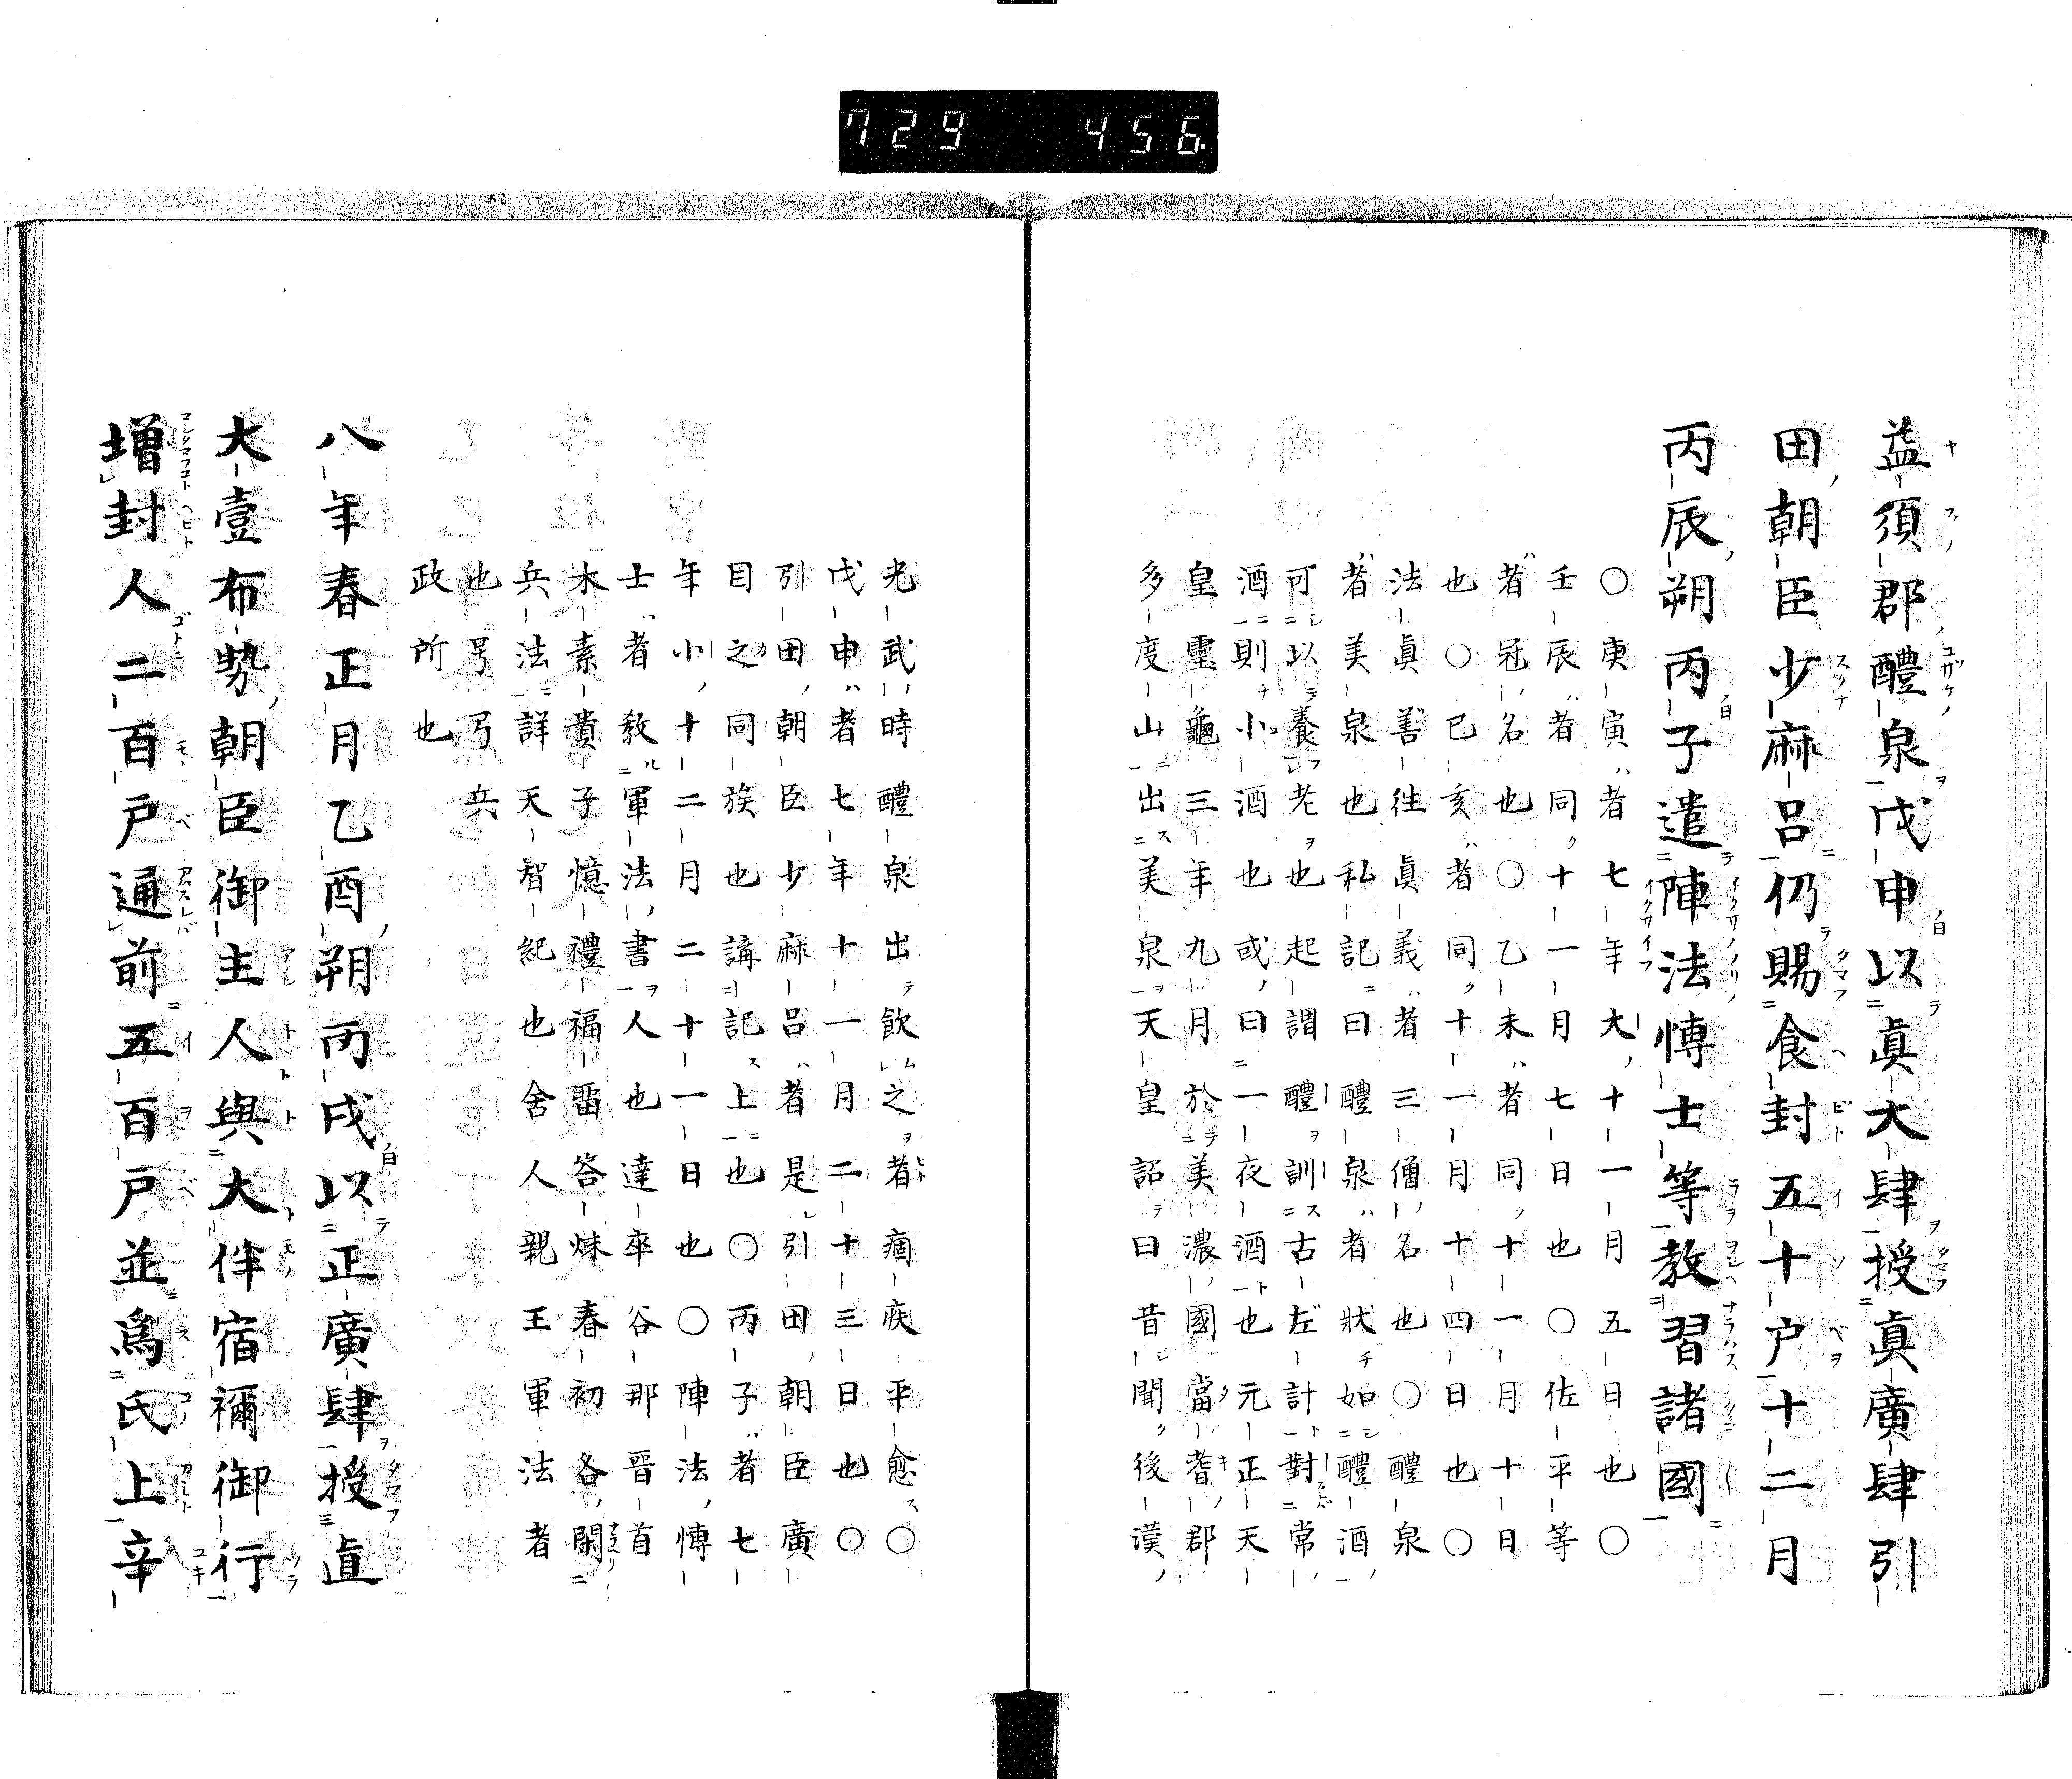 729 456.
益須郡醴泉戊申以眞大肆授眞廣肆引
田朝臣少麻呂仍賜食封五十戸十二月
丙辰朔丙子遣陣法慱士等教習諸國
〇庚寅者七年大十一月五日也〇
壬辰者同十一月七日也〇佐平等
者冠名也〇乙未者同十一月十日
也〇已亥者同十一月十四日也〇
法眞善徃眞義者三僧名也〇醴泉
者美泉也私記曰醴泉者狀如醴酒
可以養老也起謂醴訓古左計對常
酒則小酒也或曰一夜酒也元正天
皇靈龜三年九月於美濃國當耆郡
多度山出美泉天皇詔曰昔聞後漢
光武時醴泉出飲之者痼疾平愈〇
戊申者七年十一月二十三日也〇
引田朝臣少麻呂者是引田朝臣廣
目之同族也講記上也〇丙子者七
年小十二月二十一日也〇陣法慱
士者教軍法書人也達率谷那晉首
木素貴子憶禮福畱答㶬春初各閑
兵法詳天智紀也舍人親王軍法者
也号弓兵
政所也
八年春正月乙酉朔丙戌以正廣肆授直
大壹布勢朝臣御主人與大伴宿禰御行
増封人二百戸通前五百戸並爲氏上辛